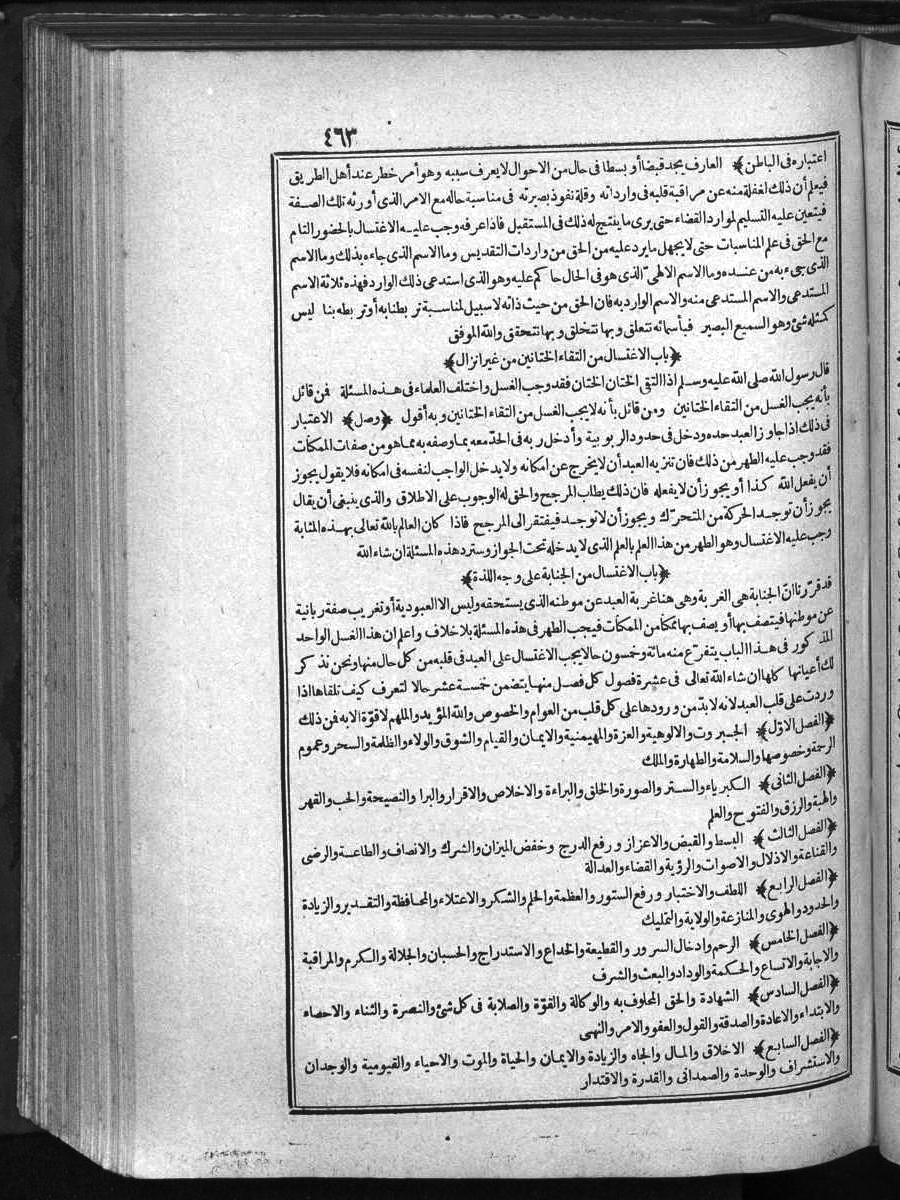 ٤٦٣
اعتباره فى الباطن﴾ العارف يجد قبضا أو بسطا فى حال من الاحوال لا يعرف سببه وهو أمر خطر عند أهل الطريق
فيعلم أن ذلك لغفلة منه عن مراقبة قلبه فى وارداته وقلة نفوذ بصيرته فى مناسبة حاله مع الامر الذى أورثه تلك الصفة
فيتعين عليه التسليم لموارد القضاء حتى يرى ما ينتج له ذلك فى المستقبل فاذا عرفه وجب عليه الاغتسال بالحضور التام
مع الحق فى علم المناسبات حتى لا يجهل ما يرد عليه من الحق من واردات التقديس وما الاسم الذى جاءه بذلك وما الاسم
الذى جىء به من عنده وما الاسم الالهىّ الذى هو فى الحال حاكم عليه وهو الذى استدعى ذلك الوارد فهذه ثلاثة الاسم
المستدعى والاسم المستدعى منه والاسم الوارد به فان الحق من حيث ذاته لا سبيل لمناسبة تربطنا به أو تربطه بنا ليس
كمثله شئ وهو السميع البصير فبأسمائه نتعلق وبها نتخلق وبها نتحقق والله الموفق
﴿باب الاغتسال من التقاء الختانين من غير انزال﴾
قال رسول الله صلى الله عليه وسلم اذا التقى الختان الختان فقد وجب الغسل واختلف العلماء فى هذه المسئلة فمن قائل
بأنه يجب الغسل من التقاء الختانين ومن قائل بأنه لا يجب الغسل من التقاء الختانين وبه أقول ﴿وصل﴾ الاعتبار
فى ذلك اذا جاوز العبد حده ودخل فى حدود الربوبية وأدخل ربه فى الحدّ معه بما وصفه به مما هو من صفات الممكنات
فقد وجب عليه الطهر من ذلك فان تنزيه العبد أن لا يخرج عن امكانه ولا يدخل الواجب لنفسه فى امكانه فلا يقول يجوز
أن يفعل الله كذا أو يجوز أن لا يفعله فان ذلك يطلب المرجح والحق له الوجوب على الاطلاق والذى ينبغى أن يقال
يجوز أن توجد الحركة من المتحرّك ويجوز أن لا توجد فيفتقر الى المرجح فاذا كان العالم بالله تعالى بهذه المثابة
وجب عليه الاغتسال وهو الطهر من هذا العلم بالعلم الذى لا يدخله تحت الجواز وسترد هذه المسئلة ان شاء الله
﴿باب الاغتسال من الجنابة على وجه اللذة﴾
قد قرّرنا انّ الجنابة هى الغربة وهى هنا غربة العبد عن موطنه الذى يستحقه وليس الا العبودية أو تغريب صفة ربانية
عن موطنها فيتصف بها أو يصف بها ممكنا من الممكنات فيجب الطهر فى هذه المسئلة بلا خلاف واعلم ان هذا الغسل الواحد
المذكور فى هذا الباب يتفرّع منه مائة وخمسون حالا يجب الاغتسال على العبد فى قلبه من كل حال منها ونحن نذكر
لك أعيانها كلها ان شاء الله تعالى فى عشرة فصول كل فصل منها يتضمن خمسة عشر حالا لتعرف كيف تلقاها اذا
وردت على قلب العبد لانه لا بدّ من ورودها على كل قلب من العوام والخصوص والله المؤيد والملهم لا قوّة الا به فمن ذلك
﴿الفصل الاوّل﴾ الجبروت والالوهية والعزة والمهيمنية والايمان والقيام والشوق والولاء والظلمة والسحر وعموم
الرحمة وخصوصها والسلامة والطهارة والملك
﴿الفصل الثانى﴾ الكبرياء والستر والصورة والخلق والبراءة والاخلاص والاقرار والبرا والنصيحة والحب والقهر
والهبة والرزق والفتوح والعلم
﴿الفصل الثالث﴾ البسط والقبض والاعزاز ورفع الدرج وخفض الميزان والشرك والانصاف والطاعة والرضى
والقناعة والاذلال والاصوات والرؤية والقضاء والعدالة
﴿الفصل الرابع﴾ اللطف والاختبار ورفع الستور والعظمة والحلم والشكر والاعتلاء والمحافظة والتقدير والزيادة
والحدود والهوى والمنازعة والولاية والتمليك
﴿الفصل الخامس﴾ الرحم وادخال السرور والقطيعة والخداع والاستدراج والحسبان والجلالة والكرم والمراقبة
والاجابة والاتساع والحكمة والوداد والبعث والشرف
﴿الفصل السادس﴾ الشهادة والحق المخلوف به والوكالة والقوّة والصلابة فى كل شئ والنصرة والثناء والاحصاء
والابتداء والاعادة والصدقة والقول والعفو والامر والنهى
﴿الفصل السابع﴾ الاخلاق والمال والجاه والزيادة والايمان والحياة والموت والاحياء والقيومية والوجدان
والاستشراف والوحدة والصمدانى والقدرة والاقتدار